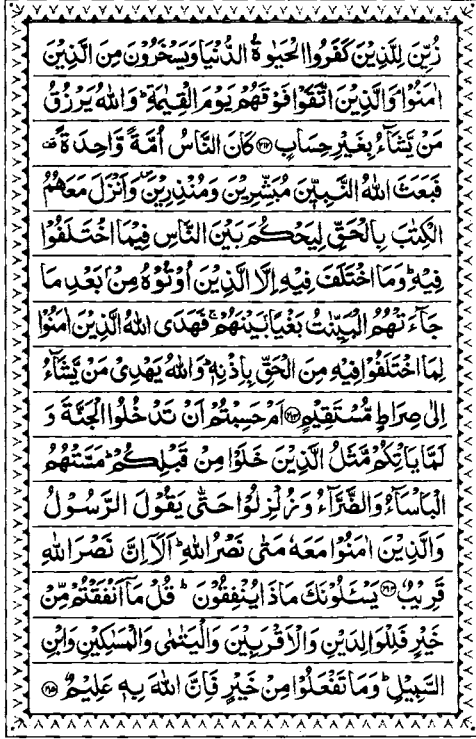 زُيِّنَ لِلَّذِيْنَ كَفَرُوا الْحَيٰوةُ الدُّنْيَا وَيَسْخَرُوْنَ مِنَ الَّذِيْنَ
اٰمَنُوْا وَالَّذِيْنَ اتَّقَوْا فَوْقَهُمْ يَوْمَ الْقِيٰمَةِ ؕ وَاللّٰهُ يَرْزُقُ
مَنْ يَّشَآءُ بِغَيْرِ حِسَابٍ ﴿۲۱۲﴾ كَانَ النَّاسُ اُمَّةً وَّاحِدَةً ۟
فَبَعَثَ اللّٰهُ النَّبِيّٖنَ مُبَشِّرِيْنَ وَمُنْذِرِيْنَ ۪ وَاَنْزَلَ مَعَهُمُ
الْكِتٰبَ بِالْحَقِّ لِيَحْكُمَ بَيْنَ النَّاسِ فِيْمَا اخْتَلَفُوْا
فِيْهِ ؕ وَمَا اخْتَلَفَ فِيْهِ اِلَّا الَّذِيْنَ اُوْتُوْهُ مِنْۢ بَعْدِ مَا
جَآءَتْهُمُ الْبَيِّنٰتُ بَغْيًۢا بَيْنَهُمْ ۚ فَهَدَى اللّٰهُ الَّذِيْنَ اٰمَنُوْا
لِمَا اخْتَلَفُوْا فِيْهِ مِنَ الْحَقِّ بِاِذْنِهٖ ؕ وَاللّٰهُ يَهْدِيْ مَنْ يَّشَآءُ
اِلٰى صِرَاطٍ مُّسْتَقِيْمٍ ﴿۲۱۳﴾ اَمْ حَسِبْتُمْ اَنْ تَدْخُلُوا الْجَنَّةَ وَ
لَمَّا يَاْتِكُمْ مَّثَلُ الَّذِيْنَ خَلَوْا مِنْ قَبْلِكُمْ ؕ مَسَّتْهُمُ
الْبَاْسَآءُ وَالضَّرَّآءُ وَزُلْزِلُوْا حَتّٰى يَقُوْلَ الرَّسُوْلُ
وَالَّذِيْنَ اٰمَنُوْا مَعَهٗ مَتٰى نَصْرُ اللّٰهِ ؕ اَلَاۤ اِنَّ نَصْرَ اللّٰهِ
قَرِيْبٌ ﴿۲۱۴﴾ يَسْـَٔلُوْنَكَ مَاذَا يُنْفِقُوْنَ ؕ قُلْ مَاۤ اَنْفَقْتُمْ مِّنْ
خَيْرٍ فَلِلْوَالِدَيْنِ وَالْاَقْرَبِيْنَ وَالْيَتٰمٰى وَالْمَسٰكِيْنِ وَابْنِ
السَّبِيْلِ ؕ وَمَا تَفْعَلُوْا مِنْ خَيْرٍ فَاِنَّ اللّٰهَ بِهٖ عَلِيْمٌ ﴿۲۱۵﴾